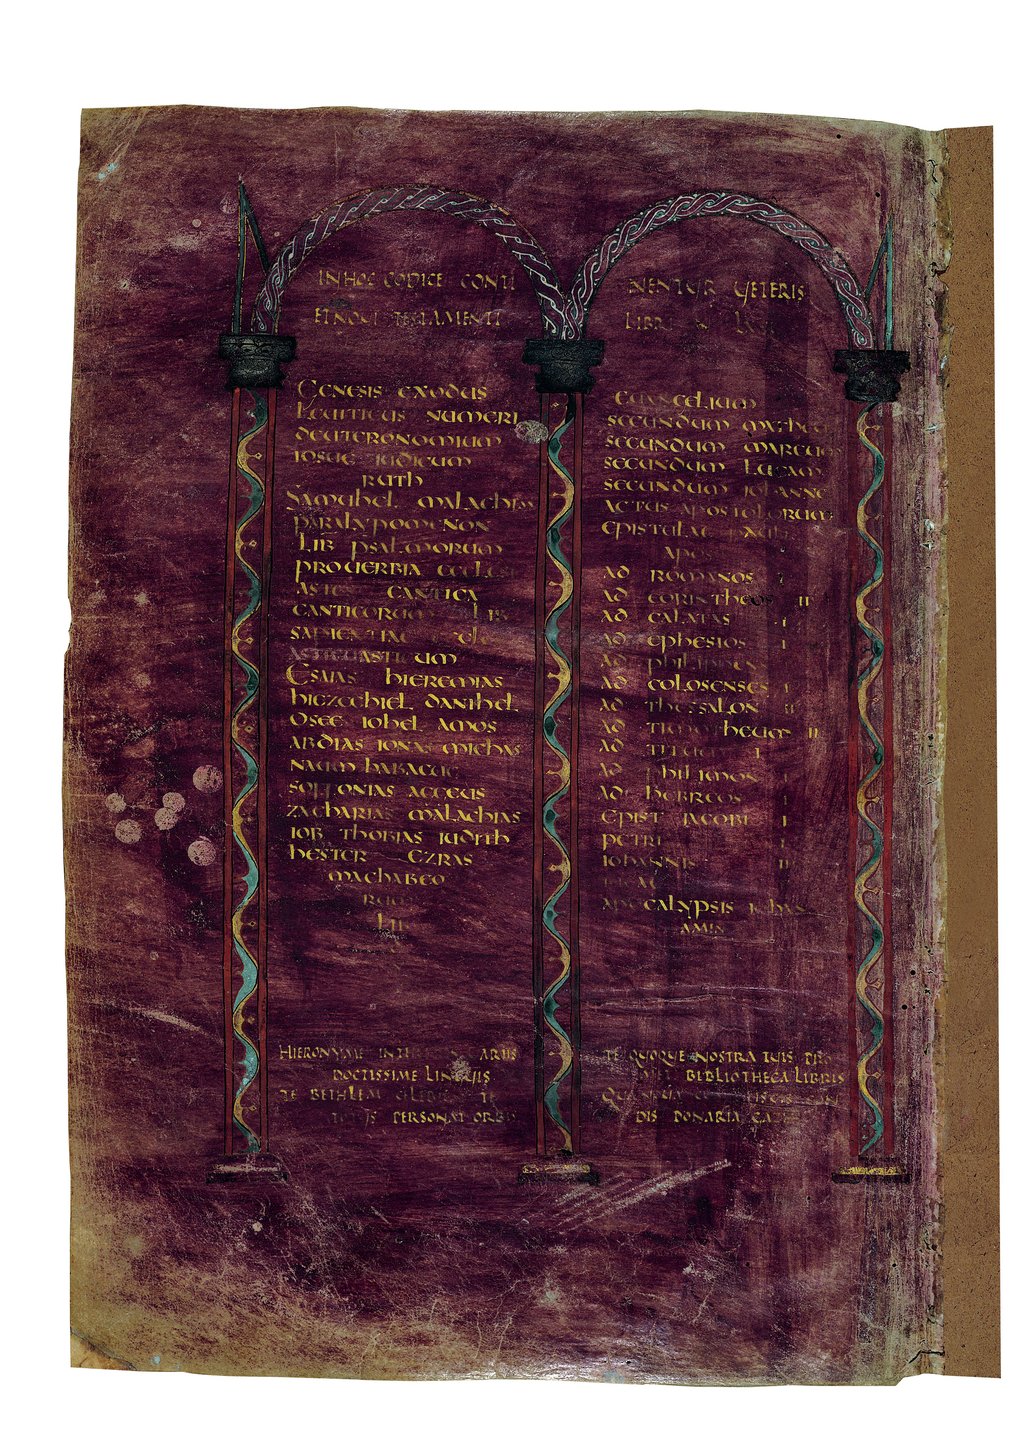 IN HOC CODICE CONTI
NENTUR VETERIS
ET NOVI TESTAMENTI
LIBRI
GENESIS EXODUS
LEUITICUS NUMERI
DEUTERONOMIUM
IOSUE IUDICUM
RUTH
SAMUHEL MALACHIM
PARALYPOMENON
LIB PSALMORUM
PROUERBIA ECCLESI
ASTES CANTICA
CANTICORUM LIB
SAPIENTIAE
ASTICUM
ESAIAS HIEREMIAS
HIEZECHIEL DANIHEL
OSEE IOHEL AMOS
ABDIAS IONAS MICHAS
NAUM HABACUC
SOFFONIAS AGGEUS
ZACHARIAS MALACHIAS
IOB THOBIAS IUDITH
HESTER EZRAS
MACHABEO
RUM
LIB
EUANGELIUM
SECUNDUM MATHEU
SECUNDUM MARCUM
SECUNDUM LUCAM
SECUNDUM IOHANNE
ACTUS APOSTOLORUM
EPISTULAE PAULI
APOS
AD ROMANOS I
AD CORINTHEOS II
AD GALATAS I
AD EPHESIOS I
AD PHILIPPENS
AD COLOSENSES I
AD THESSALON II
AD TIMOTHEUM II
AD TITUM I
AD PHILIMON I
AD HEBREOS I
EPIST IACOBI I
PETRI
IOHANNIS III
IUDAE
APOCALYPSIS IOHAN
AMIN
HIERONYME INTERPRES UARIIS
DOCTISSIME LINGUIS
TE BETHLEM CELEBRAT TE
TOTUS PERSONAT ORBIS
TE QUOQUE NOSTRA TUIS
BIBLIOTHECA LIBRIS
DIS DONARIA GAZIS